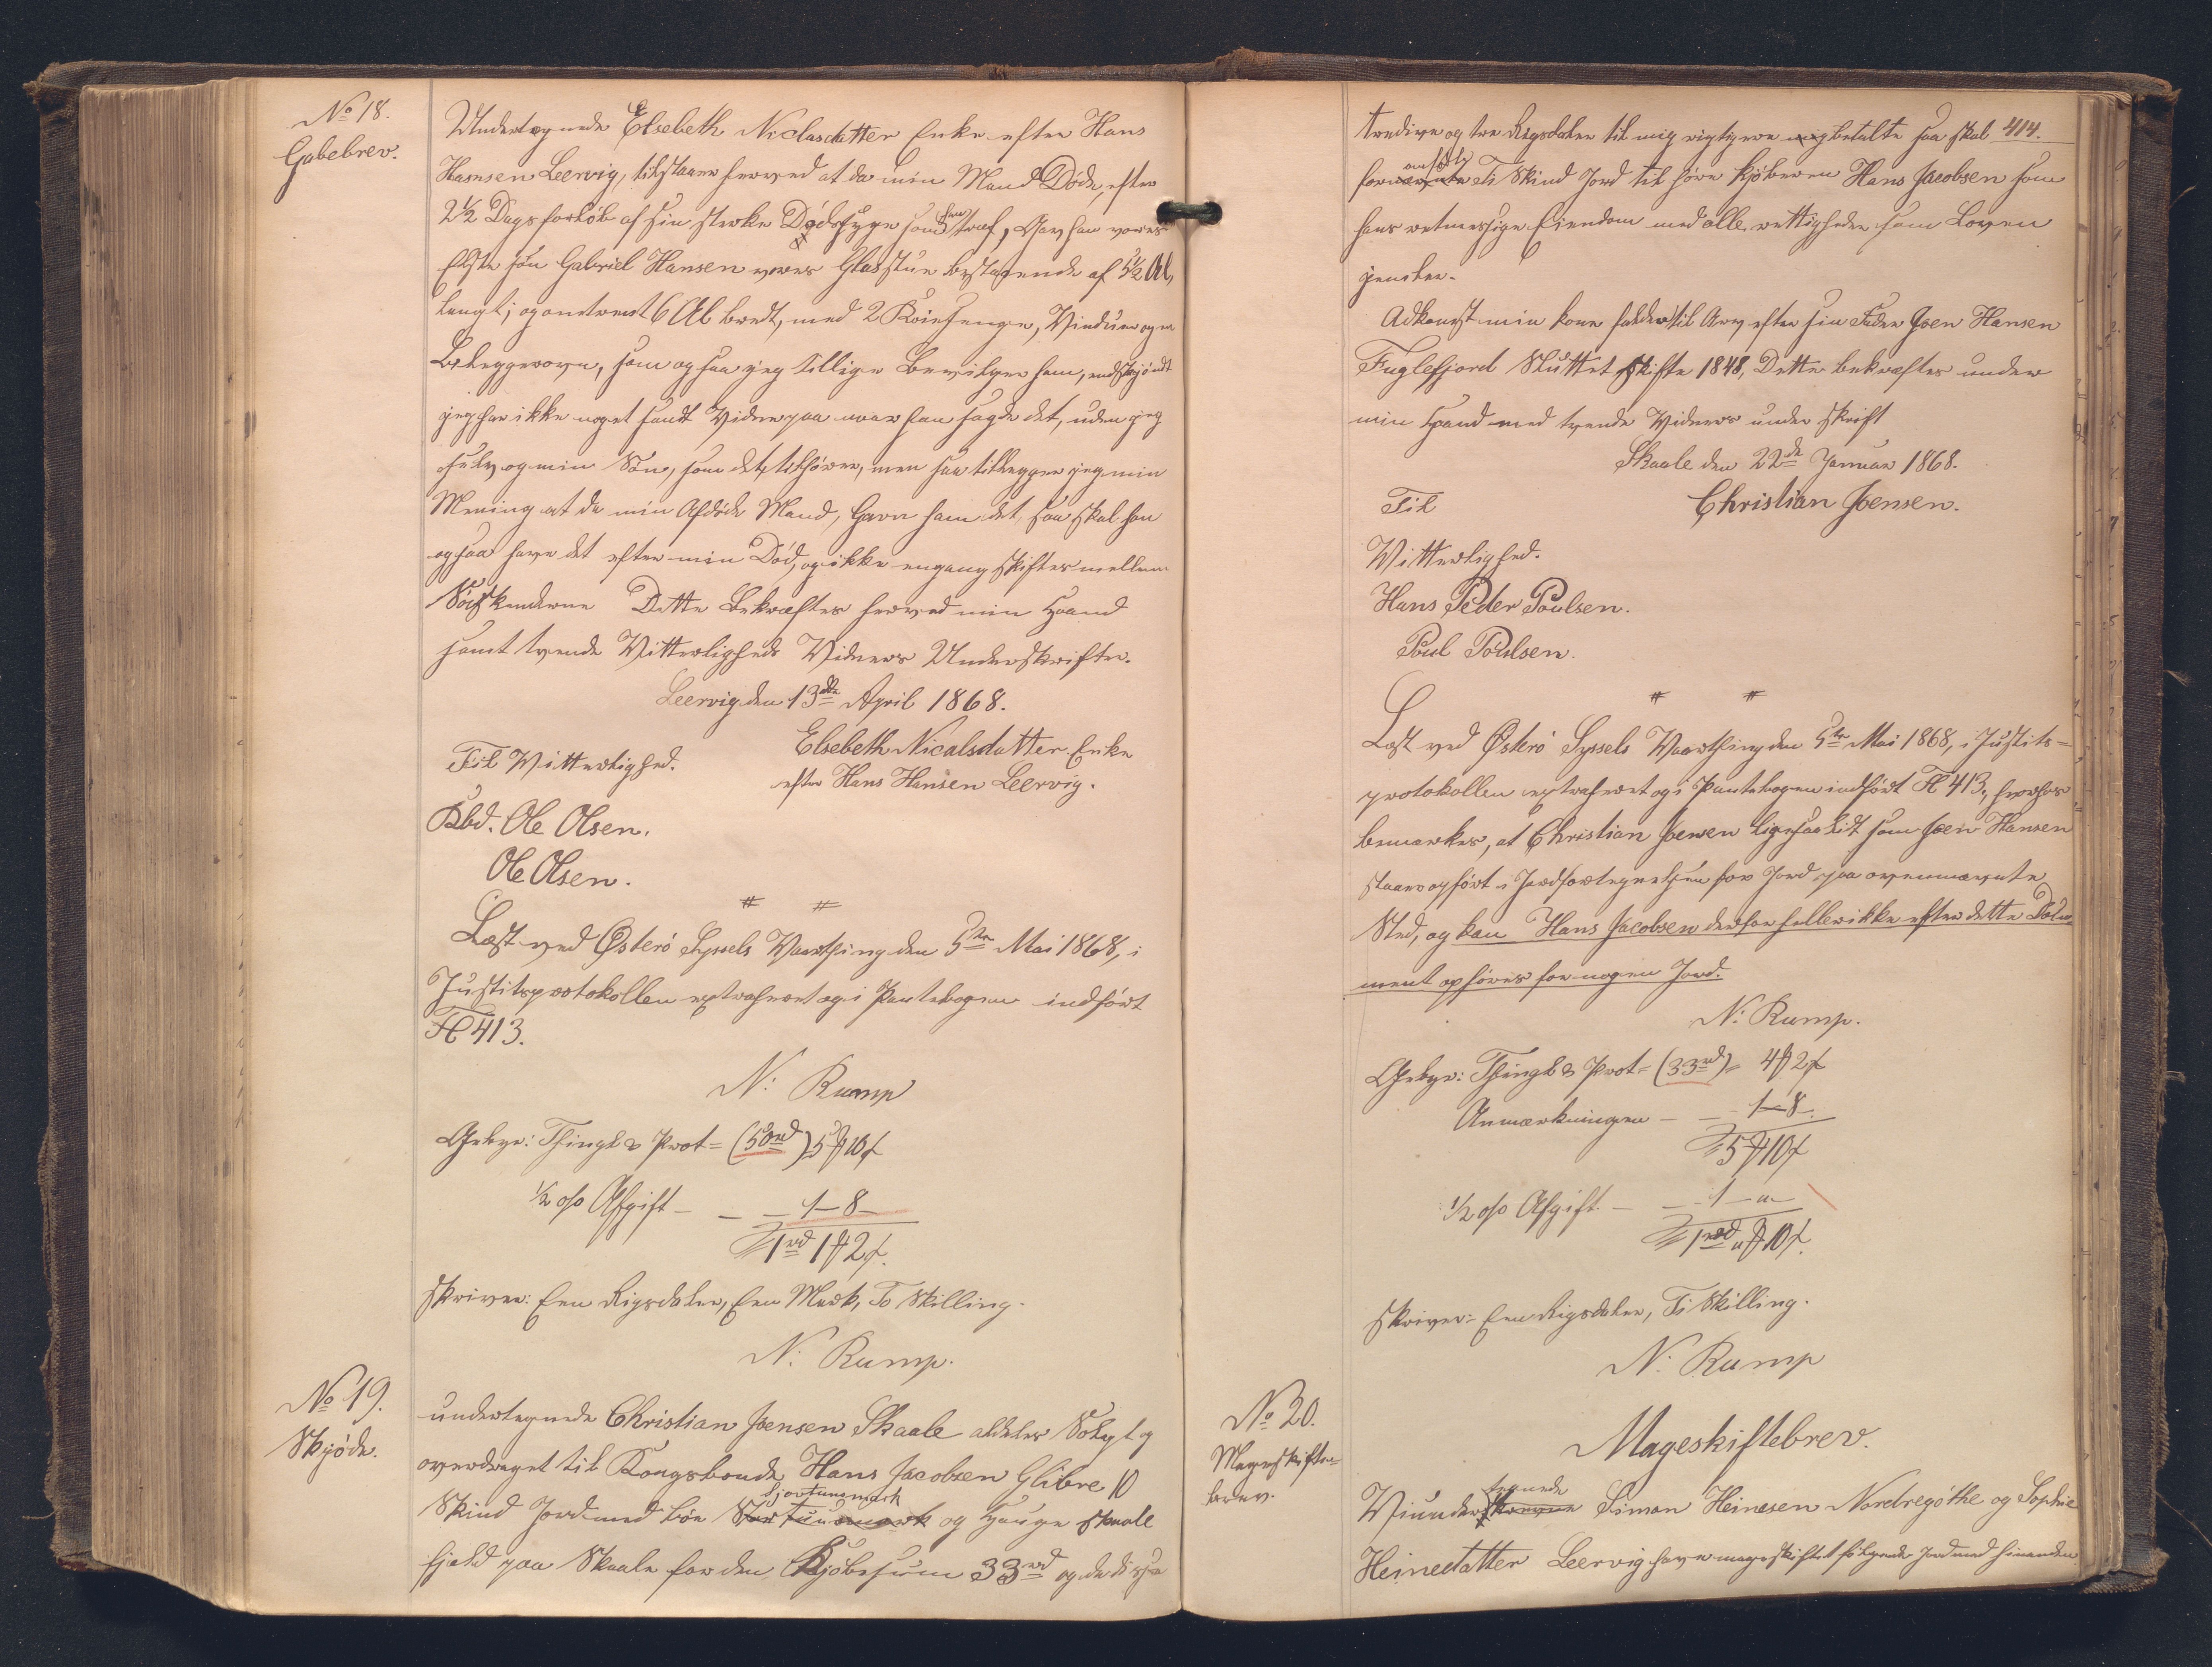 No 18.
Gabebrev.
Undertegnede Elsebeth Niclasdatter Enke efter Hans
Hansen Leervig, tilstaaer herved at da min Mand Døde, efter
2½ Dags forløb af sin sterke Dødssyge som han traf, Gav han vores
Eldste søn Gabriel Hansen vores Glasstue bestaaende af 5½ Al.
langt, og omtrent 6 Al bredt, med 2 Køiesenge, Vinduer og en
Beleggerovn, som og saa jeg tillige Bevilger ham, endskjøndt
jeg har ikke noget sandt Vidne paa naar han sagde det, uden jeg
selv og min Søn, som det tilhører, men saa tillegger jeg min
Mening at da min Afdøde Mand, Gavn ham det, saa skal han
og saa have det efter min Død, og ikke engang skiftes mellem
Søskenderne Dette Bekræftes herved min Haand
samt tvende Vitterligheds Vidners Underskrifter.
Leervig den 13de April 1868.
Elsebeth Nicalsdatter Enke
efter Hans Hansen Leervig.
Til Vitterlighed.
Kbd. Ole Olsen.
Ole Olsen.
# #
Læst ved Østerø Syssels Vaarthing den 5te Mai 1868, i
Justitsprotokollen extraheret og i Pantebogen indført
Fl 413.
N: Rump
Gebyr: Thingl & Prot= (50rd) 5 10
½ o/o Afgift - - - 1-8-
1rd 1 2
skriver: Een Rigsdaler, Een Mark, To Skilling.
N: Rump.
No 19.
Skjøde.
undertegnede Christian Joensen Skaale aldeles Solgt og
overdraget til Kongsbonde Hans Jacobsen Glibre 10
Skind Jord med
og Hauge skaale
fjeld paa Skaale for den Kjøbesum 33rd og da disse
414.
tredive og tre Rigsdaler til mig rigtig ere betalte saa skal
Ti Skind Jord til høre kjøberen Hans Jacobsen som
hans retmessige Eiendom med alle rettigheder som Loven
jemler.
Adkomst min kone falden til Arv efter sin Fader Joen Hansen
Fuglefjord Sluttet skifte 1848, Dette bekræftes under
min Haand med tvende Vidners under skrift
Skaale den 22de Januar 1868.
Christian Joensen.
Til
Vitterlighed.
Hans Peder Poulsen.
Poul Poulsen.
# #
Læst ved Østerø Syssels Vaarthing den 5te Mai 1868, i Justits=
protokollen extraheret og i Pantebogen indført Fl 413, hvorhos
bemærkes, at Christian Joensen ligesaalidt som Joen Hansen
staaer opført i Jordfortegnelsen for Jord paa ovennævnte
Sted, og kan Hans Jacobsen derfor heller ikke efter dette Doku-
ment opføres for nogen Jord.
N: Rump.
Gebyr: Thingl & Prot= (33rd)= 4 2
Anmærkningen - - 1-8.
5 10
½ o/o Afgift. - - 1 - "
1rd " 10
skriver: Een Rigsdaler, Ti Skilling.
N: Rump
No 20.
Mageskifte=
brev.
Mageskiftebrev.
tegnede
Vi under Simon Heinesen Nordregøthe og Sophie
Heinedatter Leervig have mageskiftet følgende Jord med hinanden